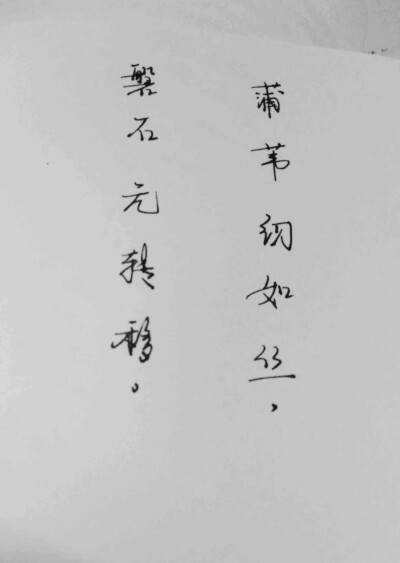 蒲苇纫如丝，
磐石元转移。